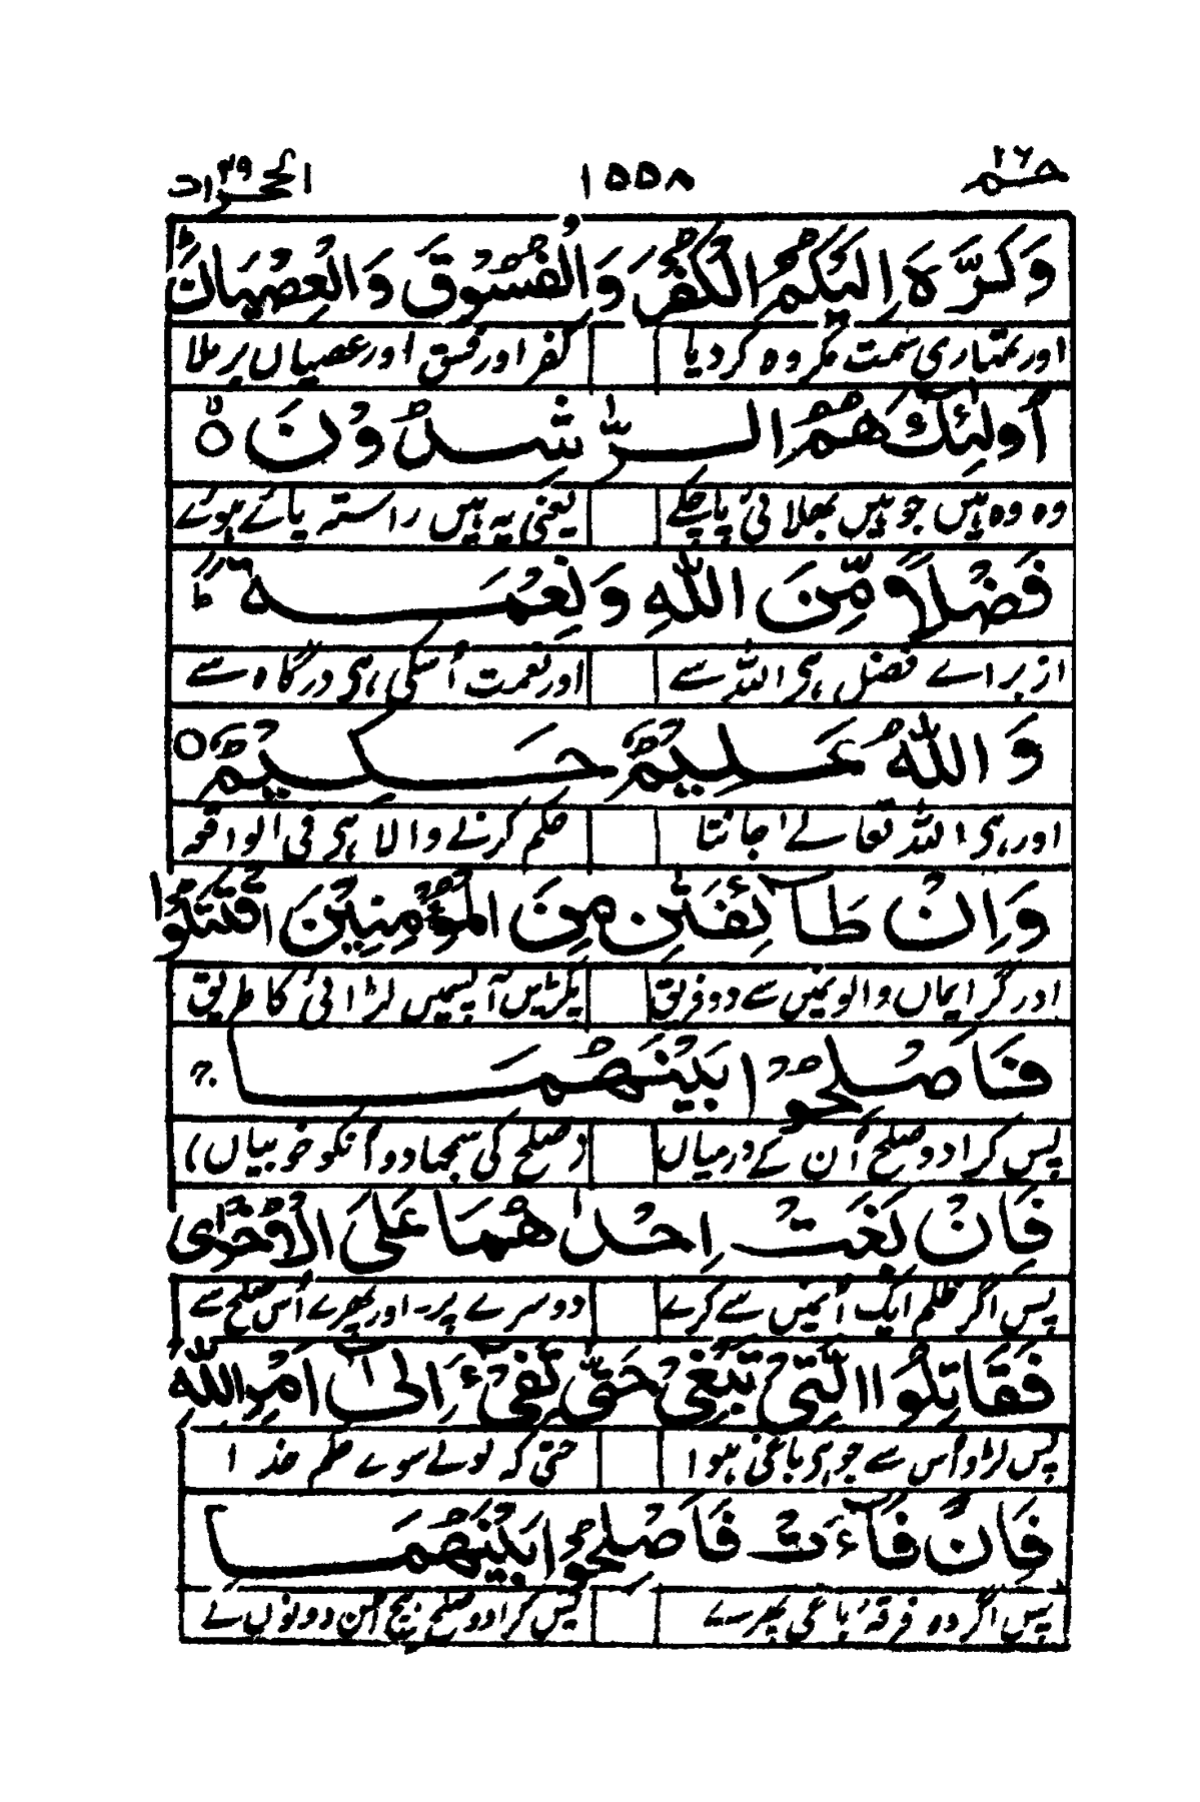 حٰم ۲۶ ۱۵۵۸ الحجرات ۴۹
وَكَرَّهَ اِلَيْكُمُ الْكُفْرَ وَالْفُسُوْقَ وَالْعِصْيَانَ ؕ
اور تمہاری سمت مکروہ کر دیا کفر اور فسق اور عصیاں بر ملا
اُولٰٓئِكَ هُمُ الرّٰشِدُوْنَ ۙ
وہ وہ ہیں جو ہیں بھلائی پا چکے یعنی یہ ہیں راستہ پائے ہوئے
فَضْلًا مِّنَ اللّٰهِ وَنِعْمَةً ؕ
از براے فضل ہی اللہ سے اور نعمت اُسکی ہی درگاہ سے
وَاللّٰهُ عَلِيْمٌ حَكِيْمٌ ○
اور ہی اللہ تعالےٰ جانتا حکم کرنے والا ہی فی الواقعہ
وَاِنْ طَآئِفَتٰنِ مِنَ الْمُؤْمِنِيْنَ اقْتَتَلُوْا
اور گر ایماں والونمیں سے دو فریق پکڑیں آپسمیں لڑائی کا طریق
فَاَصْلِحُوْا بَيْنَهُمَا ۚ
پس کرا دو صلح اُن کے درمیاں (صلح کی سمجھا دو اُنکو خوبیاں)
فَاِنْۢ بَغَتْ اِحْدٰىهُمَا عَلَى الْاُخْرٰى
پس اگر ظلم ایک اُنمیں سے کرے دوسرے پر۔ اور پھرے اُس صلح سے
فَقَاتِلُوا الَّتِيْ تَبْغِيْ حَتّٰى تَفِيْٓءَ اِلٰٓى اَمْرِ اللّٰهِ
پس لڑو اُس سے جو ہی باغی ہوا حتیٰ کہ لوٹے سوے حکم خدا
فَاِنْ فَآءَتْ فَاَصْلِحُوْا بَيْنَهُمَا
پس اگر وہ فرقۂ باغی پھرے پس کرا دو صلح بیچ اُن دونوں کے